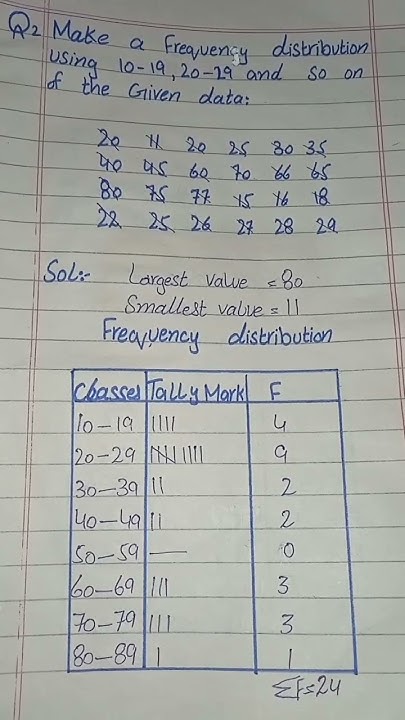 Q2 Make a Frequency distribution
using 10-19, 20-29 and so on
of the Given data:
20 11 20 25 30 35
40 45 60 70 66 65
80 75 77 15 16 18
22 25 26 27 28 29
Sol:- Largest value = 80
Smallest value = 11
Frequency distribution
Classes Tally Mark F
10-19 |||| 4
20-29 |||| |||| 9
30-39 || 2
40-49 || 2
50-59 — 0
60-69 ||| 3
70-79 ||| 3
80-89 | 1
Σf=24